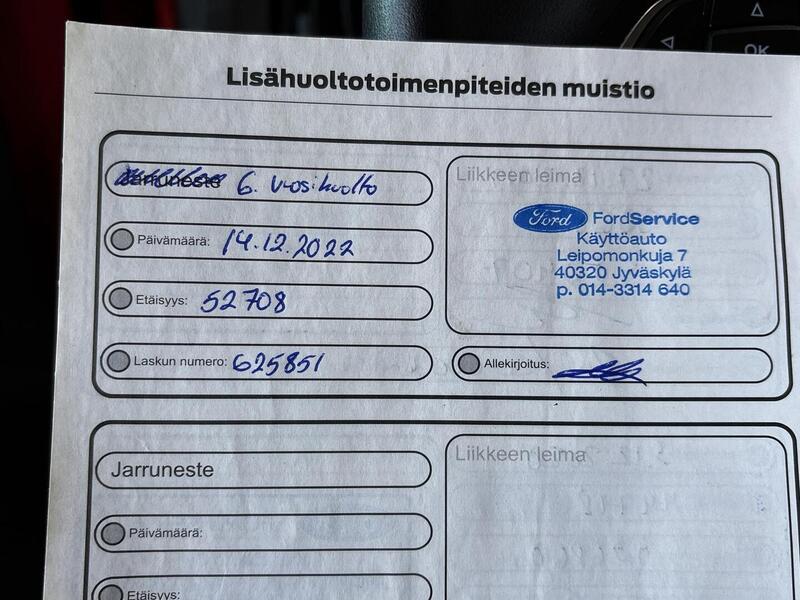 OK
Lisähuoltotoimenpiteiden muistio
Jarruneste 6. vuosihuolto
Päivämäärä: 14.12.2022
Etäisyys: 52708
Laskun numero: 625851
Liikkeen leima
Ford FordService
Käyttöauto
Leipomonkuja 7
40320 Jyväskylä
p. 014-3314 640
Allekirjoitus:
Jarruneste
Päivämäärä:
Etäisyys:
Liikkeen leima